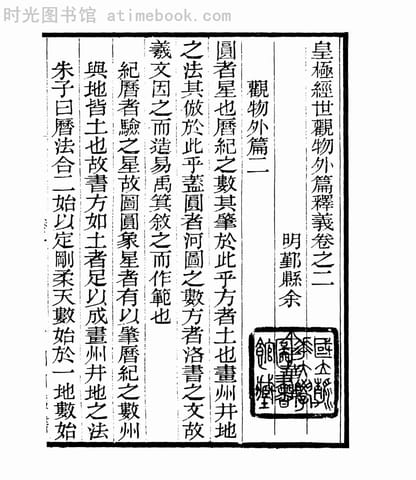 时光图书馆 - atimebook.com
皇極經世觀物外篇釋義卷之二
明鄞縣余
觀物外篇二
圓者星也曆紀之數其肇於此乎方者土也畫州井地
之法其倣於此乎蓋圓者河圖之數方者洛書之文故
羲文因之而造易禹箕敘之而作範也
紀曆者驗之星故圖圓象星者有以肇曆紀之數州
與地皆土也故書方如土者足以成畫州井地之法
朱子曰曆法合二始以定剛柔天數始於一地數始